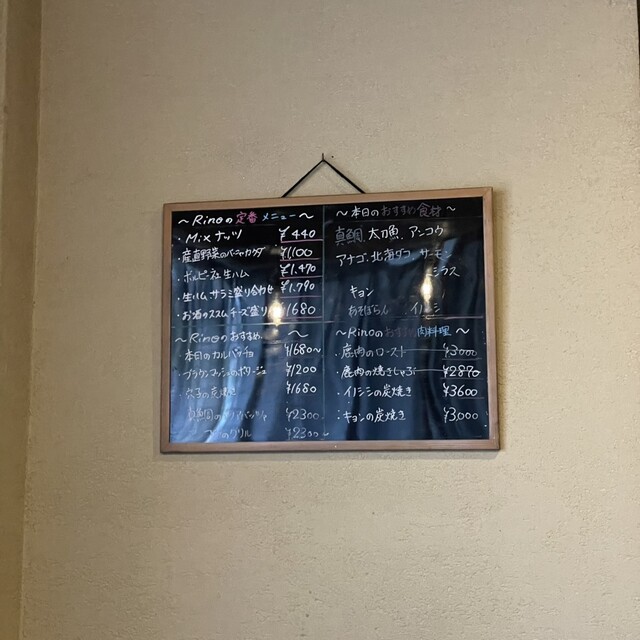 ～Rinoの定番メニュー～
・Mixナッツ ¥440
・産直野菜のバーニャカウダ ¥1,100
・ボルピーニ社 生ハム ¥1,470
・生ハム、サラミ盛り合わせ ¥1,790
・お酒のススムチーズ盛り ¥1680
～Rinoのおすすめ ～
本日のカルパッチョ ¥1680～
・ブラウンマッシュのポタージュ ¥1200
の炭焼き ¥1680
真鯛のアクアパッツァ ¥2300
のグリル ¥2300
～本日のおすすめ食材～
真鯛、太刀魚、アンコウ
アナゴ、北海ダコ、サーモン
シラス
キョン
あそばらん イノシシ
～Rinoのおすすめ肉料理～
・鹿肉のロースト ¥3000
・鹿肉の焼きしゃぶ ¥2870
・イノシシの炭焼き ¥3600
・キョンの炭焼き ¥3,000